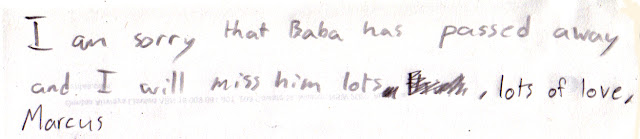 I am sorry that Baba has passed away
and I will miss him lots , lots of love,
Marcus